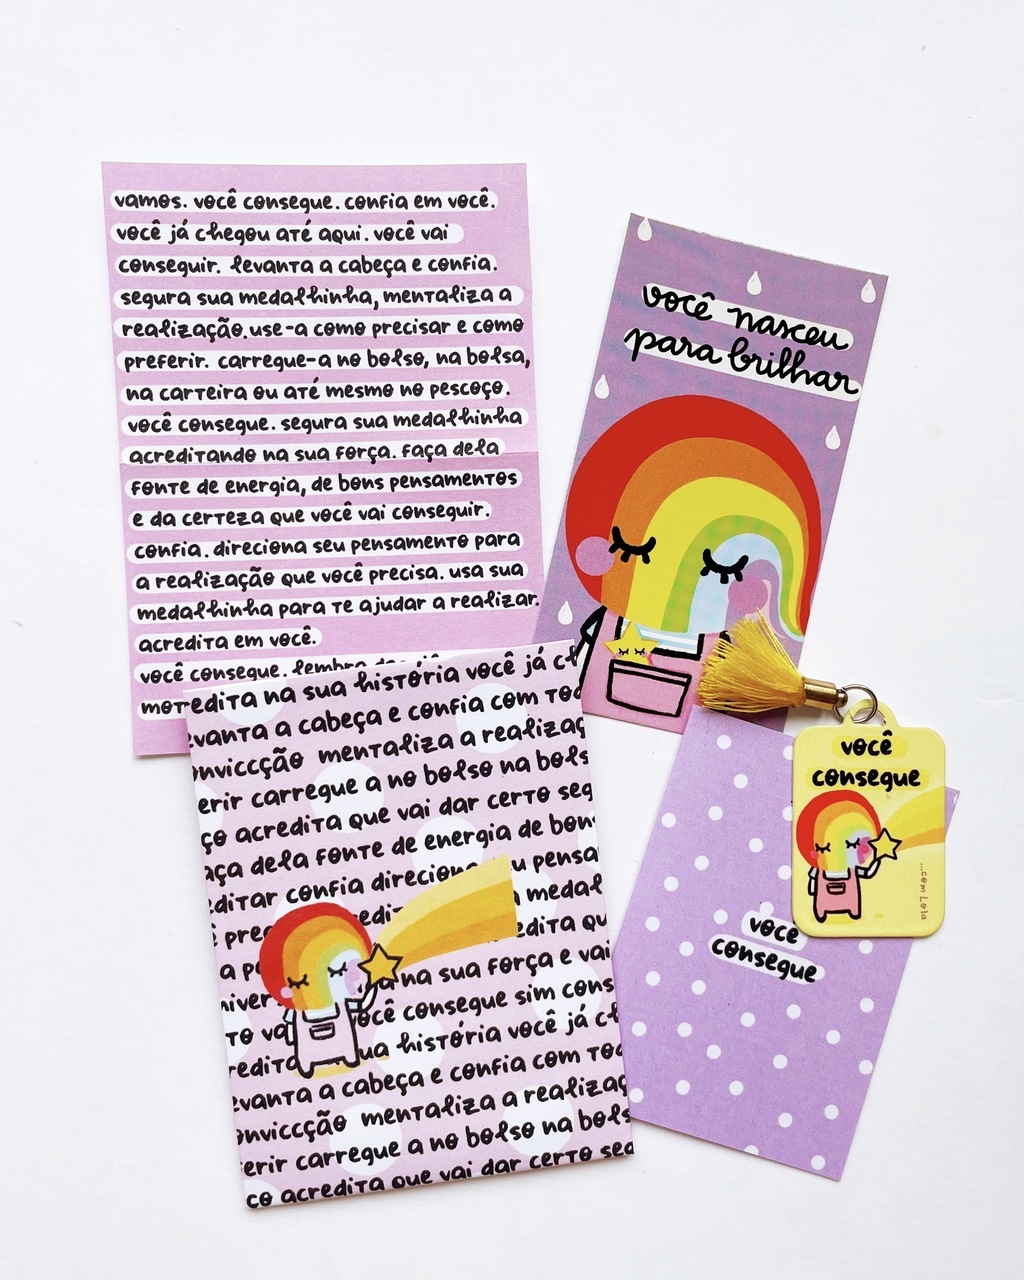 vamos. você consegue. confia em você.
você já chegou até aqui. você vai
conseguir. levanta a cabeça e confia.
segura sua medalhinha, mentaliza a
realização. use-a como precisar e como
preferir. carregue-a no bolso, na bolsa,
na carteira ou até mesmo no pescoço.
você consegue. segura sua medalhinha
acreditando na sua força. faça dela
fonte de energia, de bons pensamentos
e da certeza que você vai conseguir.
confia. direciona seu pensamento para
a realização que você precisa. usa sua
medalhinha para te ajudar a realizar.
acredita em você.
você consegue. lembra
você nasceu
para brilhar
redita na sua história você já ch
evanta a cabeça e confia com tod
onviccção mentaliza a realizaç
erir carregue a no bolso na bols
ço acredita que vai dar certo seg
aça dela fonte de energia de bons
ditar confia direciona u pensa
credi a medal
prec edita qu
a p na sua força e vai
niver você consegue sim cons
to va ua história você já ch
redita a confia com tod
evanta a cabeça e
onviccção mentaliza a realizaç
erir carregue a no bolso na bols
ço acredita que vai dar certo seg
você
consegue
...com Lola
você
consegue